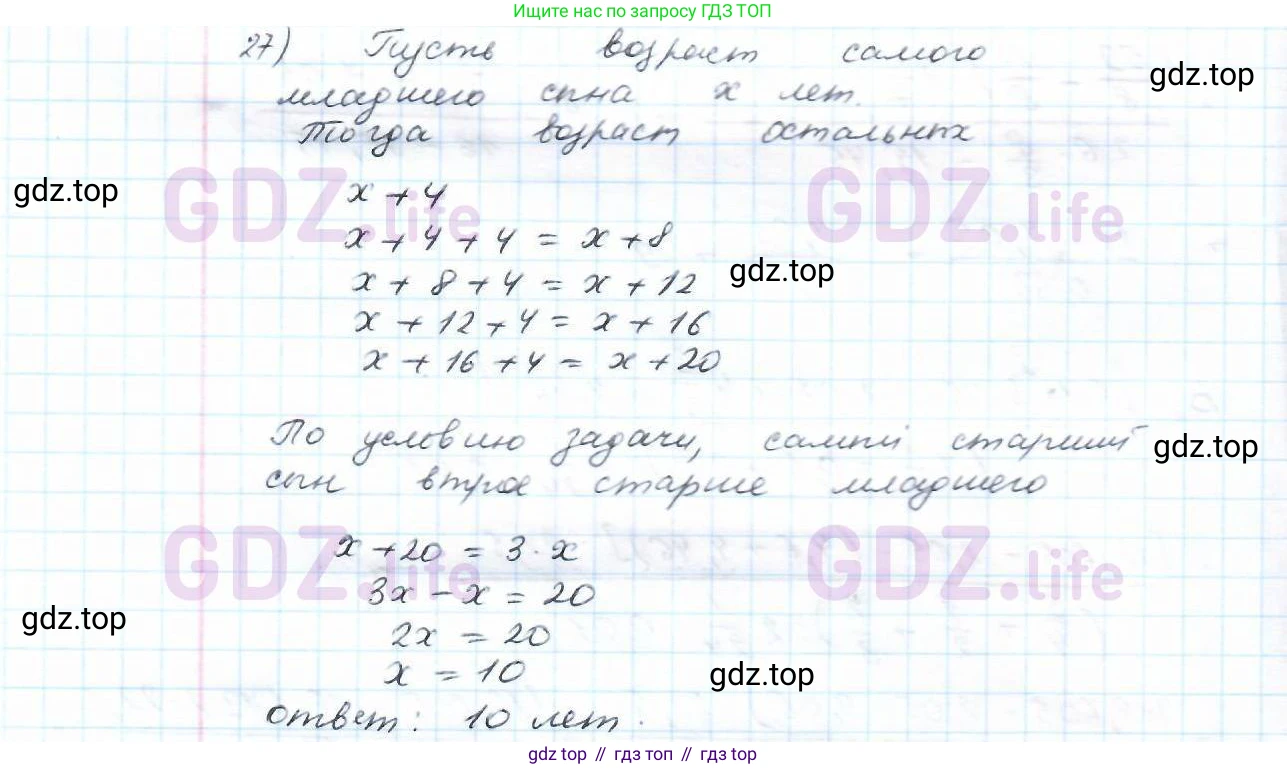 Ищите нас по запросу ГДЗ ТОП
27) Пусть возраст самого
gdz.top
младшего сына x лет.
Тогда возраст остальных
GDZ.life GDZ.life
gdz.top
x + 4
x + 4 + 4 = x + 8
gdz.top
x + 8 + 4 = x + 12
x + 12 + 4 = x + 16
x + 16 + 4 = x + 20
По условию задачи, самый старший
gdz.top
сын втрое старше младшего
GDZ.life GDZ.life
x + 20 = 3 · x
3x - x = 20
gdz.top
2x = 20
x = 10
gdz.top
Ответ: 10 лет.
gdz top // гдз топ // gdz top